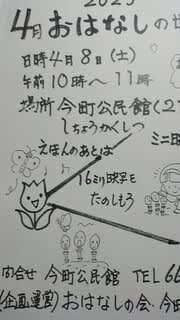 2023
4月おはなしの世
日時4月8日(土)
午前10時〜11時
場所 今町公民館(2
しちょうかくしつ
えほんのあとは
ミニ
16ミリ映画を
たのしもう
問合せ 今町公民館 TEL 66
(企画運営)おはなしの会・今